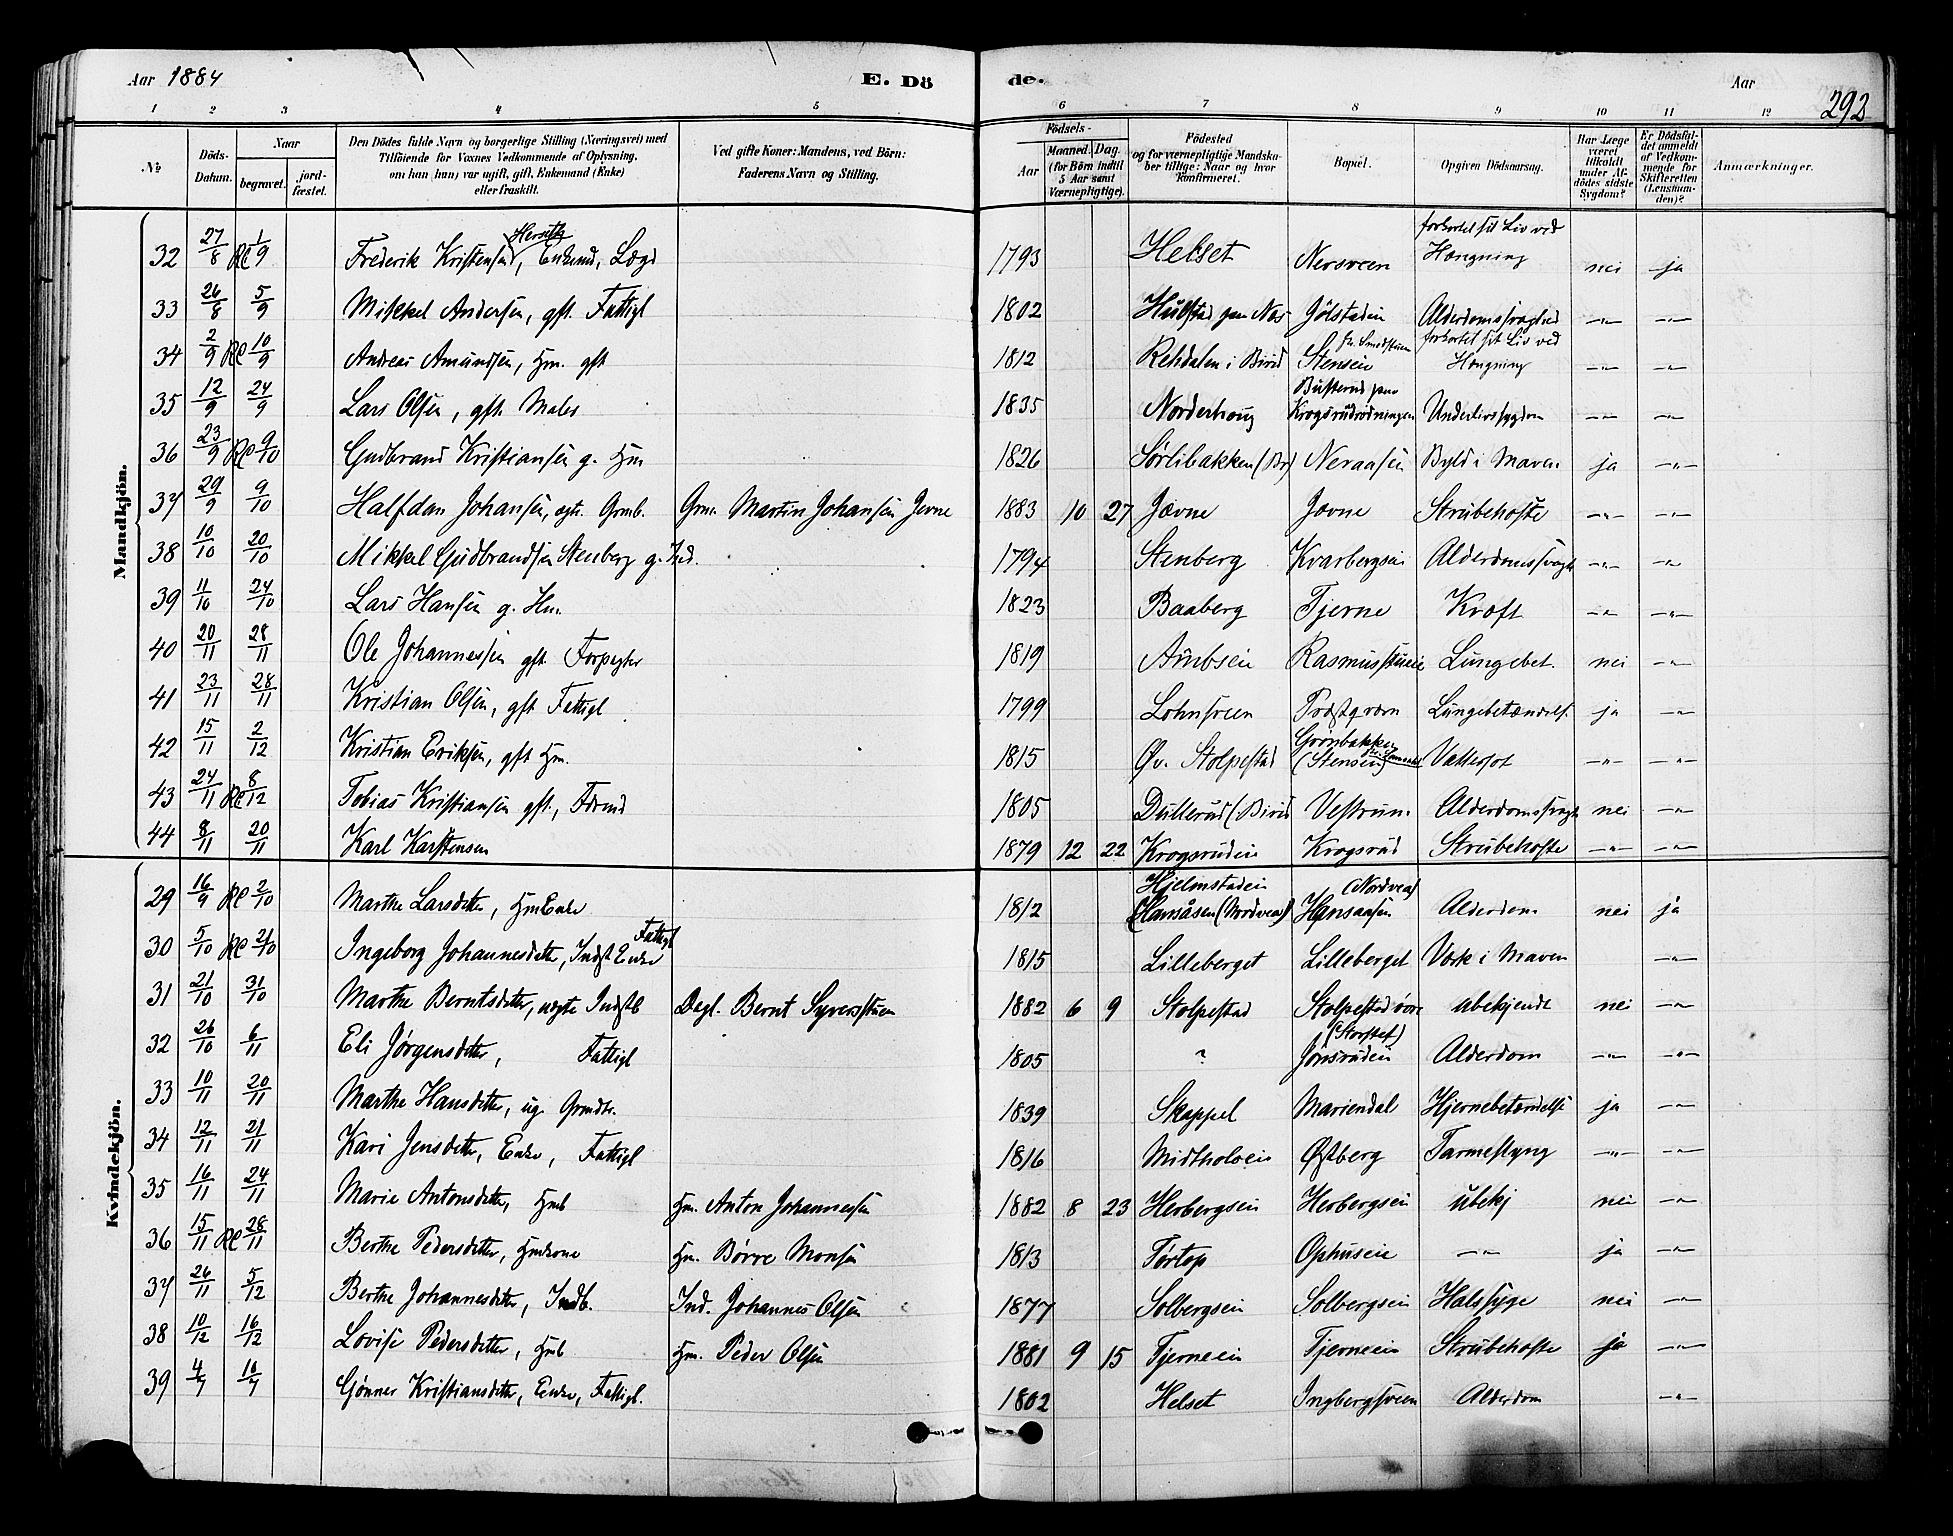 Aar 1884 E. Dö de. Aar 292
1 2 3 4 5 6 7 8 9 10 11 12
No. Döds-Datum. Naar begravet. jordfæstet. Den Dödes fulde Navn og borgerlige Stilling (Næringsvei) med Tilföiende for Voxnes Vedkommende af Oplysning, om han (hun) var ugift, gift, Enkemand (Enke) eller fraskilt. Ved gifte Koner: Mandens, ved Börn: Faderens Navn og Stilling. Födsels- Aar Maaned. Dag. (for Börn indtil 5 Aar samt Værnepligtige). Födested og for værnepligtige Mandskaber tillige: Naar og hvor konfirmeret. Bopæl. Opgiven Dödsaarsag. Har Læge været tilkaldt under Afdödes sidste Sygdom? Er Dödsfaldet anmeldt af Vedkommende for Skifteretten (Lensmanden)? Anmærkninger.
Mandkjön.
32 27/8 1/9 Frederik Kristensen, Enkemd, Lægd 1793 Helset Nersveen forkortet sit Liv ved Hængning nei ja
33 26/8 5/9 Mikkel Andersen, gft. Fattigl 1802 Hulstad paa Næs Jølstadeien Alderdomssvaghed -"- -"-
34 2/9 10/9 Andreas Amundsen, Hm. gft 1812 Rehdalen i Birid Stenseie forkortet sit Liv ved Hængning -"- -"-
35 12/9 24/9 Lars Olsen, gft. Maler 1835 Norderhoug Krogsrudrødningen Underlivssygdom -"- -"-
36 23/9 9/10 Gudbrand Kristiansen g. Hm 1826 Sørlibakken (Br) Neraasen Byld i Maven ja -"-
37 29/9 9/10 Halfdan Johansen, ægte Grmb. Grm. Martin Johansen Jevne 1883 10 27 Jævne Jævne Strubehoste -"- -"-
38 10/10 20/10 Mikkel Gudbrandsen Stenberg g. Ind. 1794 Stenberg Kvarbergseie Alderdomssvagh -"- -"-
39 11/10 24/10 Lars Hansen g. Hm. 1823 Baaberg Tjerne Kræft -"- -"-
40 20/11 28/11 Ole Johannessen gft. Forpagter 1819 Rasmusstueeie Lungebet. nei -"-
41 23/11 28/11 Kristian Olsen, gft Fattigl 1799 Lohnsveen Lungebetændels. ja -"-
42 15/11 2/12 Kristian Eriksen, gft Hm. 1815 Øv. Stolpestad Grønbakken (Stensen) Vattersot -"- -"-
43 24/11 8/12 Tobias Kristiansen gft., Fdrmd 1805 Dullerud (Birid Vestrum Alderdomssvagh nei -"-
44 8/11 20/11 Karl Karstensen 1879 12 22 Krogsrudeie Krogsrud Strubehoste -"- -"-
Kvindekjön.
29 16/9 2/10 Marthe Larsdatter, HmEnke 1812 Hjelmstadeie (Hansåsen (Nordvea)) Hansaasen (Nordvea) Alderdom nei ja
30 5/10 21/10 Ingeborg Johannesdatter, Indst Enke Fattigl 1815 Lilleberget Lilleberget Værk i Maven -"-
31 21/10 31/10 Marthe Berntsdatter, ægte Indstb Dagl. Bernt Syversstuen 1882 6 9 Stolpestad Stolpestad øvre ubekjendt nei -"-
32 26/10 6/11 Eli Jørgensdatter, Fattigl 1805 ? Jønsrudeie Alderdom -"- -"-
33 10/11 20/11 Marthe Hansdatter, ug. Grmdtr. 1839 Skappel Mariendal Hjernebetændelse ja -"-
34 12/11 21/11 Kari Jensdatter, Enke, Fattigl 1816 Midtholseie Østberg Tarmeslyng -"- -"-
35 16/11 24/11 Marie Antonsdatter, Hmb Hm. Anton Johannesen 1882 8 23 Herbergseie Herbergseie ubekj nei -"-
36 15/11 28/11 Berthe Pedersdatter, Hmkone Hm. Børre Monsen 1813 Tørtop Ophuseie -"- ja -"-
37 26/11 5/12 Berthe Johannesdatter, Indb. Ind. Johannes Olsen 1877 Solbergseie Solbergseie Halssyge nei -"-
38 10/12 16/12 Lovise Pedersdatter, Hmb Hm. Peder Olsen 1881 9 15 Tjerneeie Tjerneeie Strubehoste ja -"-
39 4/7 Gønner Kristiansdatter, Enke, Fattigl. 1802 Helset Ingbergsveen Alderdom -"-